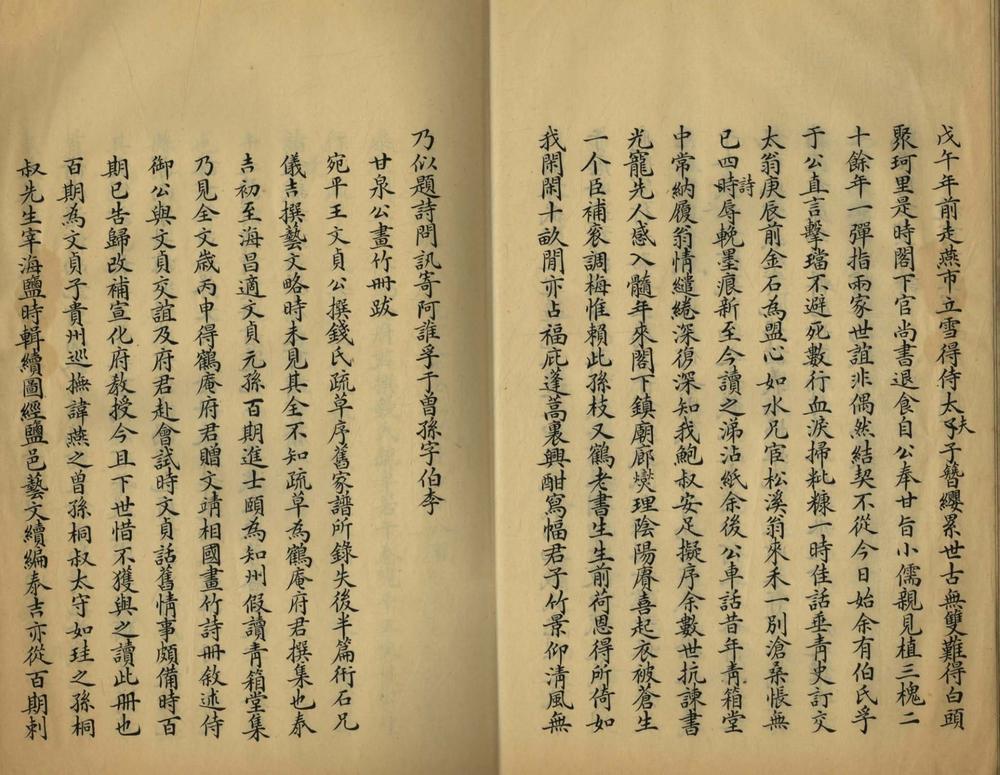 戊午年前走燕市立雪得侍太夫子子簪纓累世古無雙難得白頭
聚珂里是時閣下官尚書退食自公奉甘旨小儒親見植三槐二
十餘年一彈指兩家世誼非偶然結契不從今日始余有伯氏孚
于公直言擊璫不避死數行血淚掃粃糠一時佳話垂青史訂交
太翁庚辰前金石為盟心如水兄宦松溪翁來未一別滄桑悵無
已四時詩辱輓墨痕新至今讀之涕沾紙余後公車話昔年青箱堂
中常納履翁情繾綣深復深知我鮑叔安足擬序余數世抗諫書
光寵先人感入髓年來閣下鎮廟廊燮理陰陽賡喜起衣被蒼生
一个臣補衮調梅惟賴此孫枝又鶴老書生生前荷恩得所倚如
我閑閑十畝間亦占福庇蓬蒿裏興酣寫幅君子竹景仰清風無
乃似題詩問訊寄阿誰孚于曾孫字伯李
甘泉公畫竹冊跋
宛平王文貞公撰錢氏疏草序舊家譜所錄失後半篇衎石兄
儀吉撰藝文略時未見其全不知疏草為鶴庵府君撰集也泰
吉初至海昌適文貞元孫百期進士頤為知州假讀青箱堂集
乃見全文歲丙申得鶴庵府君贈文靖相國畫竹詩冊敘述侍
御公與文貞交誼及府君赴會試時文貞話舊情事頗備時百
期已告歸改補宣化府教授今且下世惜不獲與之讀此冊也
百期為文貞子貴州巡撫諱燕之曾孫桐叔太守如珪之孫桐
叔先生宰海鹽時輯續圖經鹽邑藝文續編泰吉亦從百期刺